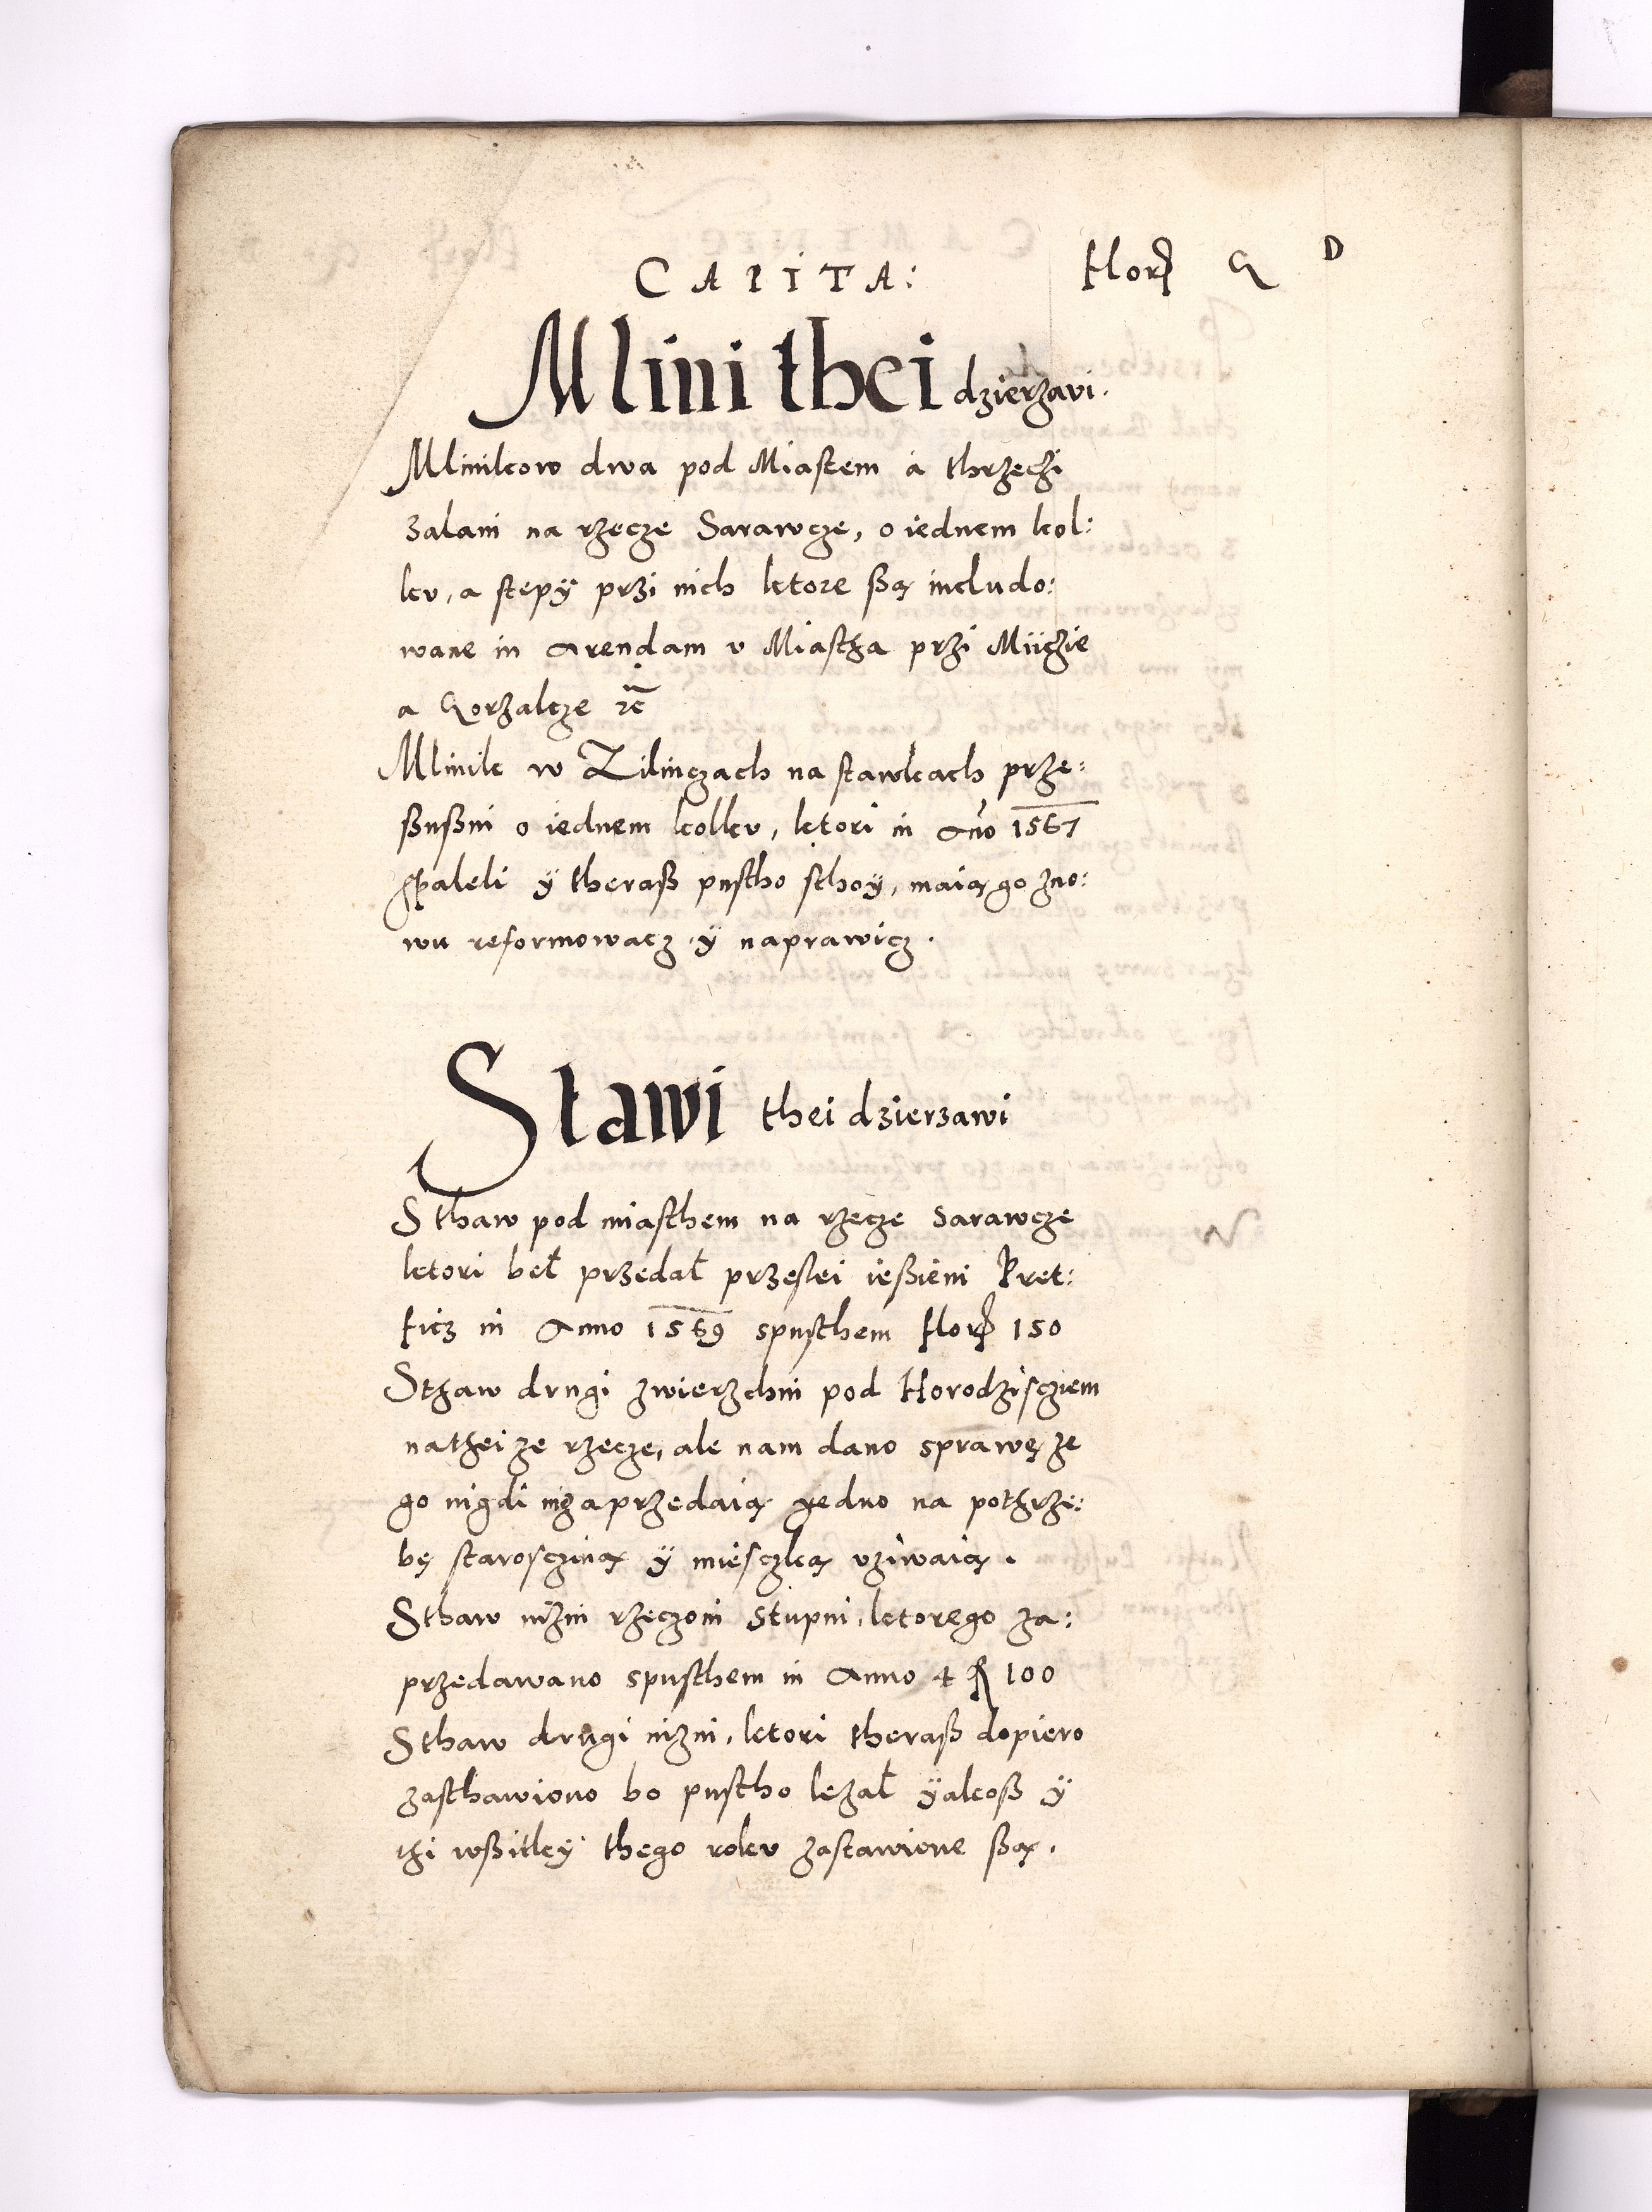 CAPITA: Flor G D
Mlini thei dzierzavi.
Mlinikow dwa pod Miastem a thrzechi
zalani na rzecze Sarawcze, o iednem kol:
kv, a stepy przi nich ktore ßą includo:
wane in Arendam v Miastha przi Miichie
a Gorzalcze rc
Mlinik w Zilinczach na stawkach prze:
ßnßni o iednem kolkv, ktori in Ano 1567
spaleli ÿ theraß pustho sthoÿ, maią go zno:
wu reformowacz ÿ naprawicz.
Stawi thei dzierzawi
Sthaw pod miasthem na rzecze Sarawcze
ktori beł przedał przeslei ießieni Pret:
ficz in Anno 1569 spusthem Flor 150
Sthaw drugi zwierzchni pod Horodzisczem
na thei ze rzecze, ale nam dano sprawę ze
go nigdi niza przedaią jedno na pothrze:
bę staroscziną ÿ miesczką vziwaią.
Sthaw nizni rzeczoni Stupni, ktorego za:
przedawano spusthem in Anno 4 fl 100
Sthaw drugi nizni, ktori theraß dopiero
zasthawiono bo pustho lezał ÿakoß ÿ
thi wßitkeÿ thego rokv zastawione ßą.